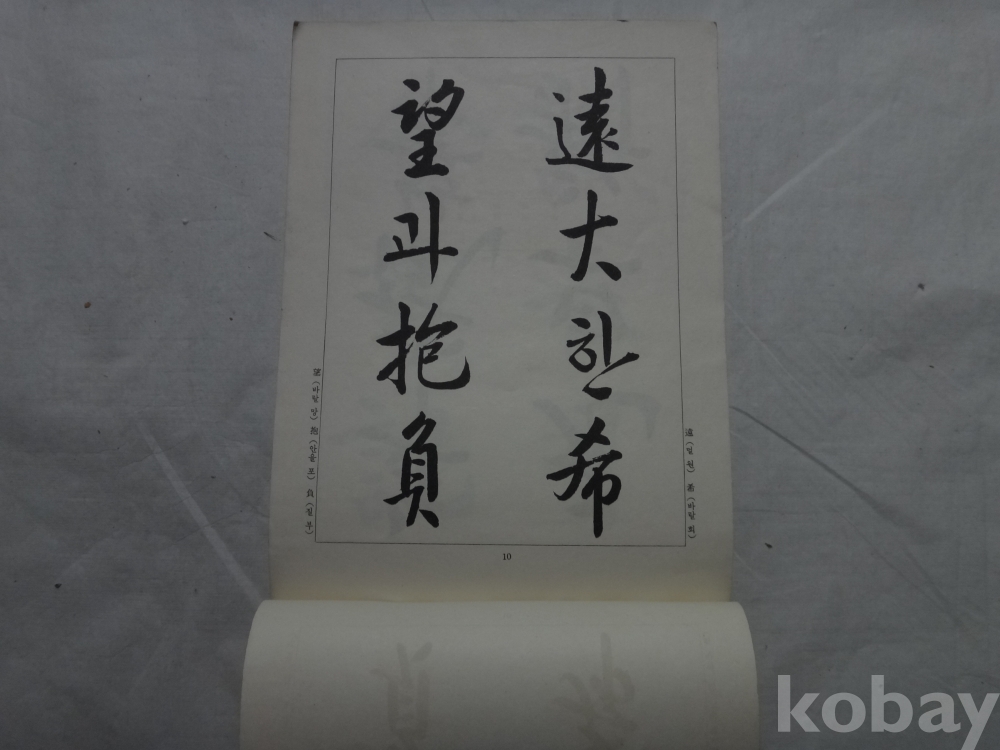 遠大한希
望과抱負
遠(멀 원) 希(바랄 희)
望(바랄 망) 抱(안을 포) 負(질 부)
10
kobay